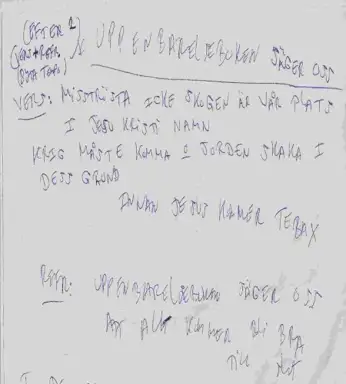 (EFTER 2
UPPENBARELSEBOKEN SÄGER OSS
VERS: MISSTRÖSTA ICKE SKOGEN ÄR VÅR PLATS
I JESU KRISTI NAMN
KRIG MÅSTE KOMMA O JORDEN SKAKA I
DESS GRUND
INNAN JESUS KOMER TEBAX
REFR: UPPENBARELSEBOKEN SÄGER OSS
ATT ALLT KOMMER BLI BRA
TILL SLUT